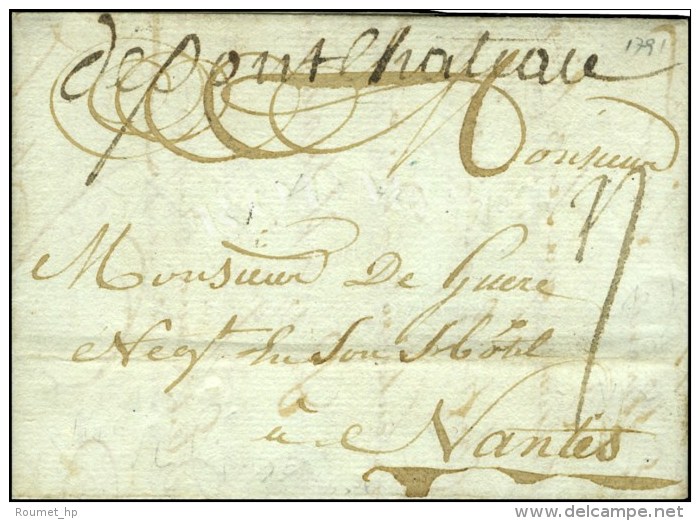 de pontchateau
1791
Monsieur
Monsieur De Guere
Negt En Son hôtel
à Nantes
Roumet_hp
delcampe.net